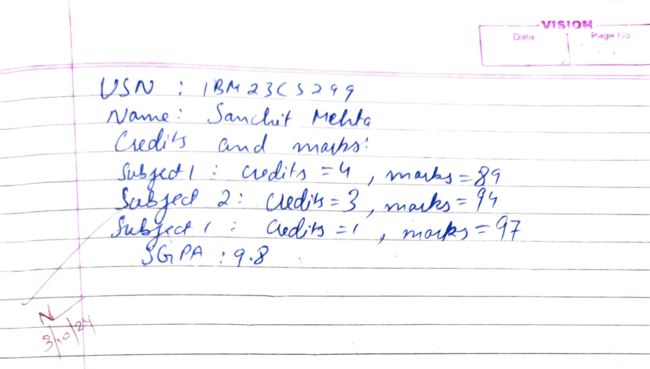 VISION
Date Page No
USN : 1BM23CS299
Name: Sanchit Mehta
Credits and marks:
Subject 1 : credits = 4 , marks = 89
Subject 2 : Credits = 3 , marks = 94
Subject 1 : Credits = 1 , marks = 97
SGPA : 9.8
N
3/10/24